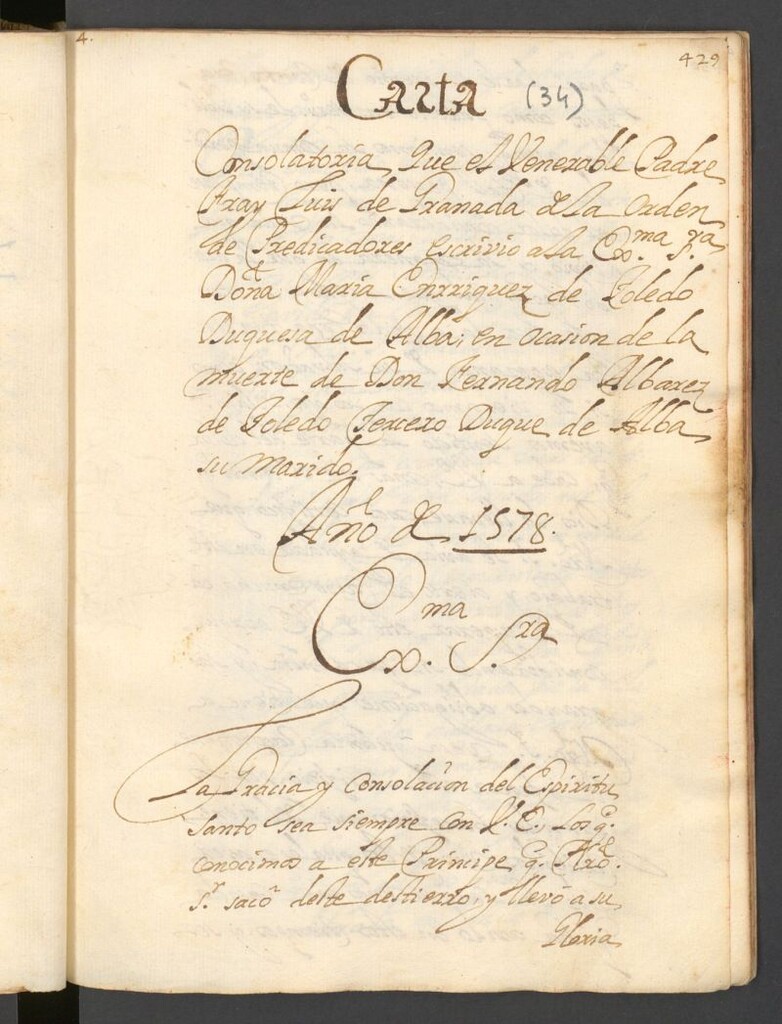 4.
429
Carta (34)
Consolatoria, Que el Venerable Padre
Fray Luis de Granada de la Orden
de Predicadores escrivio a la Ex.ma S.ra
Doña Maria Enrriquez de Toledo
Duquesa de Alba, en ocasion de la
muerte de Don Fernando Albarez
de Toledo Tercero Duque de Alba
su Marido.
Año de 1578.
Ex.ma S.ra
La Gracia y consolacion del Espiritu
Santo sea siempre con V. E. Los q.
conocimos a este Principe q. Nro.
S.r sacó deste destierro, y llevó a su
Gloria